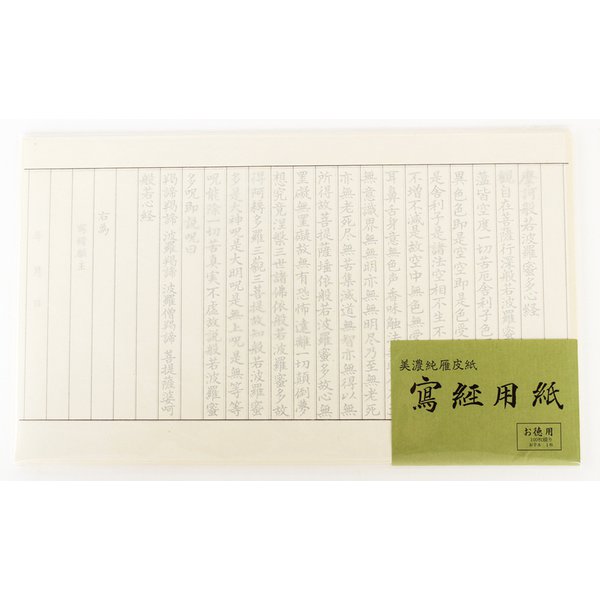 摩訶般若波羅蜜多心経
観自在菩薩行深般若波羅蜜
蘊皆空度一切苦厄舎利子色
異色色即是空空即是色受
是舎利子是諸法空相不生不
不増不減是故空中無色無受
耳鼻舌身意無色声香味触法
無意識界無無明亦無無明尽乃至無老死
亦無老死尽無苦集滅道無智亦無得以無
所得故菩提薩埵依般若波羅蜜多故心無
罣礙無罣礙故無有恐怖遠離一切顛倒夢
想究竟涅槃三世諸佛依般若波羅蜜多故
得阿耨多羅三藐三菩提故知般若波羅蜜
多是大神呪是大明呪是無上呪是無等等
呪能除一切苦真実不虚故説般若波羅蜜
多呪即説呪曰
羯諦羯諦 波羅羯諦 波羅僧羯諦 菩提薩婆呵
般若心経
右為
年 月 日
美濃純雁皮紙
寫経用紙
お徳用
100枚綴り
お手本 1枚